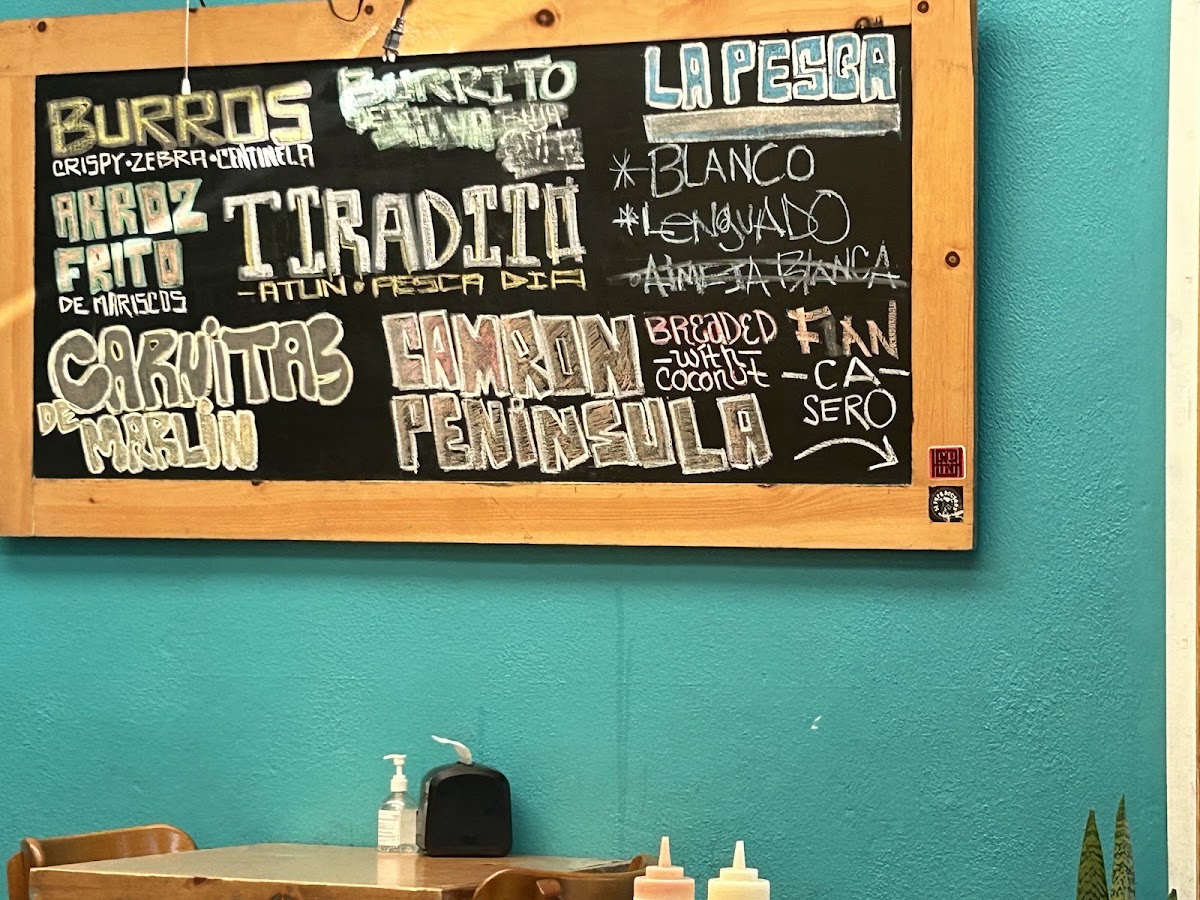 BURROS
CRISPY • ZEBRA • CENTINELA
BURRITO
ARROZ
FRITO
DE MARISCOS
TIRADITO
- ATUN • PESCA DIA
LA PESCA
* BLANCO
* LENGUADO
• ALMEJA BLANCA
CARNITAS
DE
MARLIN
CAMRON
PENINSULA
BREADED
- with -
coconut
FlAN
- CA -
SERO